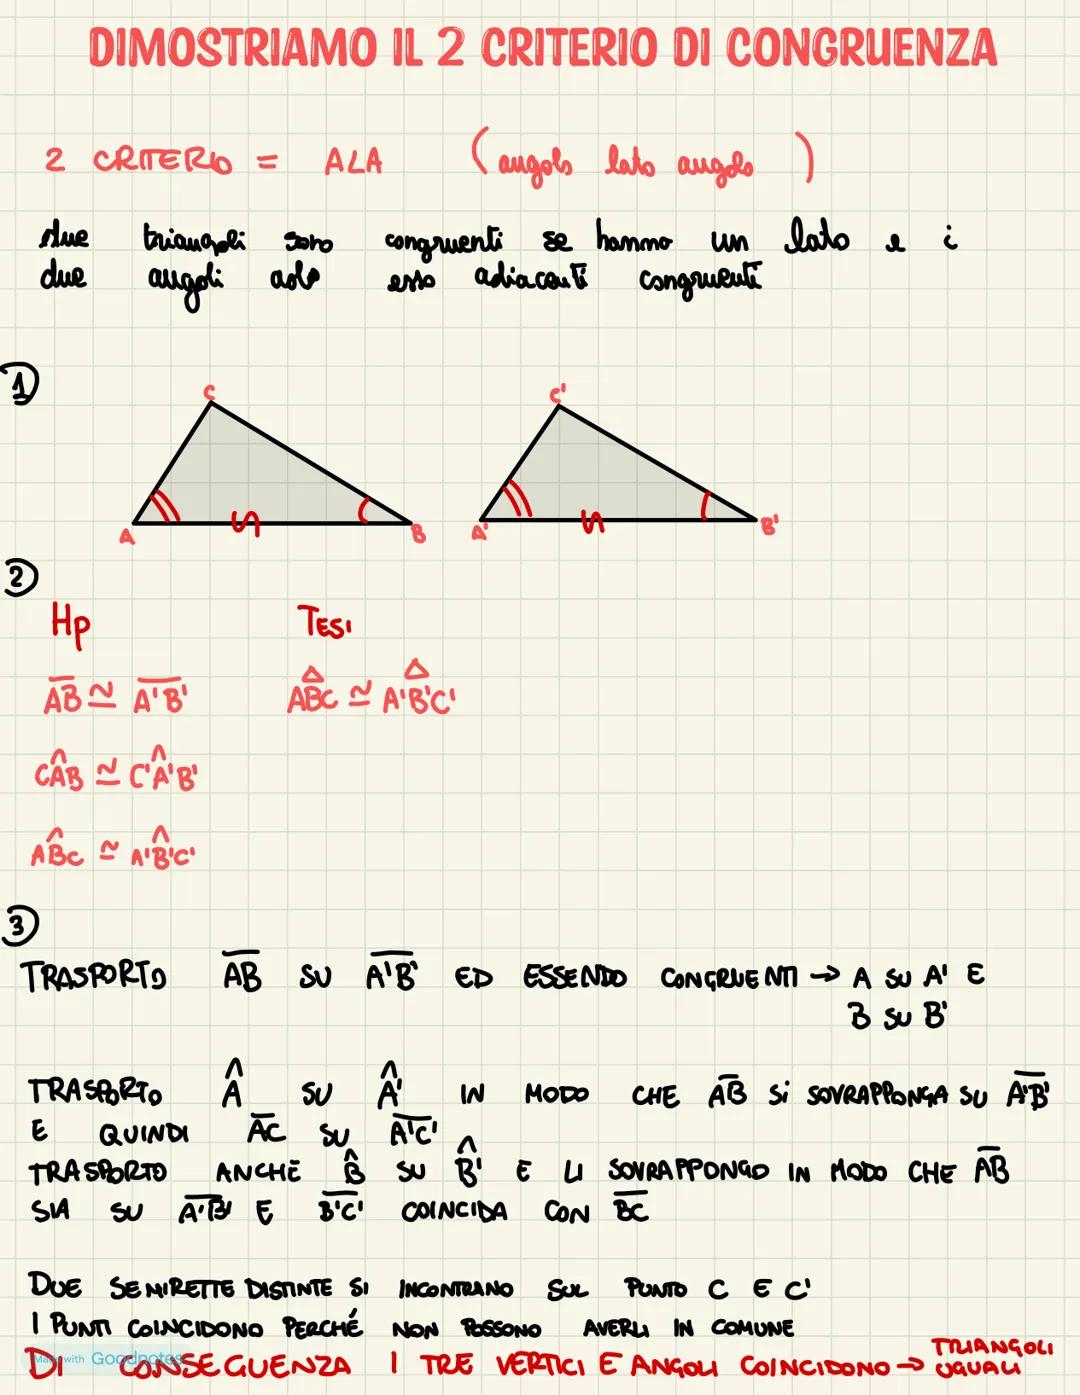 DIMOSTRIAMO IL 2 CRITERIO DI CONGRUENZA
2 CRITERIO = ALA (angolo lato angolo)
due triangoli sono congruenti se hanno un lato e i
due angoli ado esso adiacenti congruenti
1)
C C'
A B A' B'
2)
Hp Tesi
A̅B̅ ≅ A̅'̅B̅'̅ ABC ≅ A'B'C'
CÂB ≅ C'Â'B'
AB̂C ≅ A'B̂'C'
3)
TRASPORTO A̅B̅ SU A̅'̅B̅'̅ ED ESSENDO CONGRUENTI → A SU A' E
B SU B'
TRASPORTO Â SU Â' IN MODO CHE A̅B̅ Si SOVRAPPONGA SU A̅'̅B̅'̅
E QUINDI A̅C̅ SU A̅'̅C̅'̅
TRASPORTO ANCHE B̂ SU B̂' E LI SOVRAPPONGO IN MODO CHE A̅B̅
SIA SU A̅'̅B̅'̅ E B̅'̅C̅'̅ COINCIDA CON B̅C̅
DUE SEMIRETTE DISTINTE SI INCONTRANO SUL PUNTO C E C'
I PUNTI COINCIDONO PERCHÉ NON POSSONO AVERLI IN COMUNE
DI CONSEGUENZA I TRE VERTICI E ANGOLI COINCIDONO → TRIANGOLI
UGUALI
Made with Goodnotes